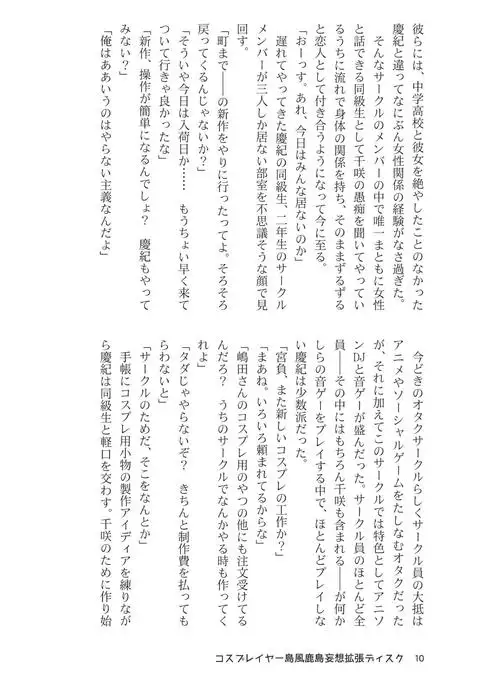 彼らには、中学高校と彼女を絶やしたことのなかった
慶紀と違ってなにぶん女性関係の経験がなさ過ぎた。
そんなサークルのメンバーの中で唯一まともに女性
と話できる同級生として千咲の愚痴を聞いてやってい
るうちに流れで身体の関係を持ち、そのままずるずる
と恋人として付き合うようになって今に至る。
「おーっす。あれ、今日はみんな居ないのか」
遅れてやってきた慶紀の同級生、二年生のサークル
メンバーが三人しか居ない部室を不思議そうな顔で見
回す。
「町まで――の新作をやりに行ったってよ。そろそろ
戻ってくるんじゃないか？」
「そういや今日は入荷日か……　もうちょい早く来て
ついて行きゃ良かったな」
「新作、操作が簡単になるんでしょ？　慶紀もやって
みない？」
「俺はああいうのはやらない主義なんだよ」
今どきのオタクサークルらしくサークル員の大抵は
アニメやソーシャルゲームをたしなむオタクだった
が、それに加えてこのサークルでは特色としてアニソ
ンDJと音ゲーが盛んだった。サークル員のほとんど全
員――その中にはもちろん千咲も含まれる――が何か
しらの音ゲーをプレイする中で、ほとんどプレイしな
い慶紀は少数派だった。
「宮負、また新しいコスプレの工作か？」
「まあね。いろいろ頼まれてるからな」
「嶋田さんのコスプレ用のやつの他にも注文受けてる
んだろ？　うちのサークルでなんかやる時も作ってく
れよ」
「タダじゃやらないぞ？　きちんと制作費を払っても
らわないと」
「サークルのためだ、そこをなんとか」
手帳にコスプレ用小物の製作アイディアを練りなが
ら慶紀は同級生と軽口を交わす。千咲のために作り始
コスプレイヤー島風鹿島妄想拡張ディスク　10